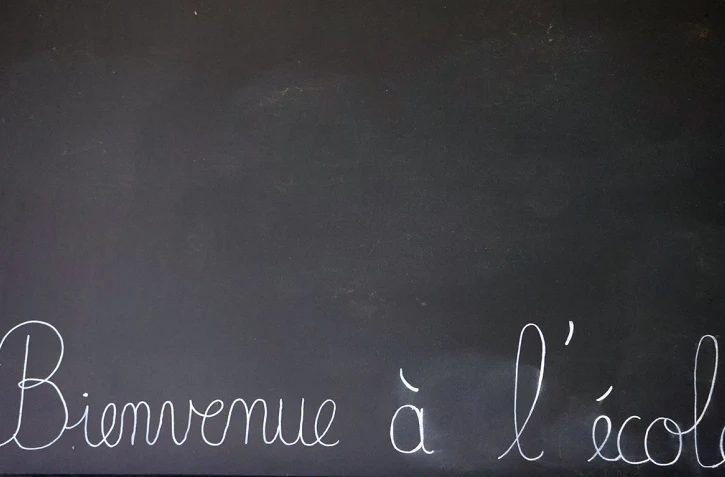 Bienvenue à l'école